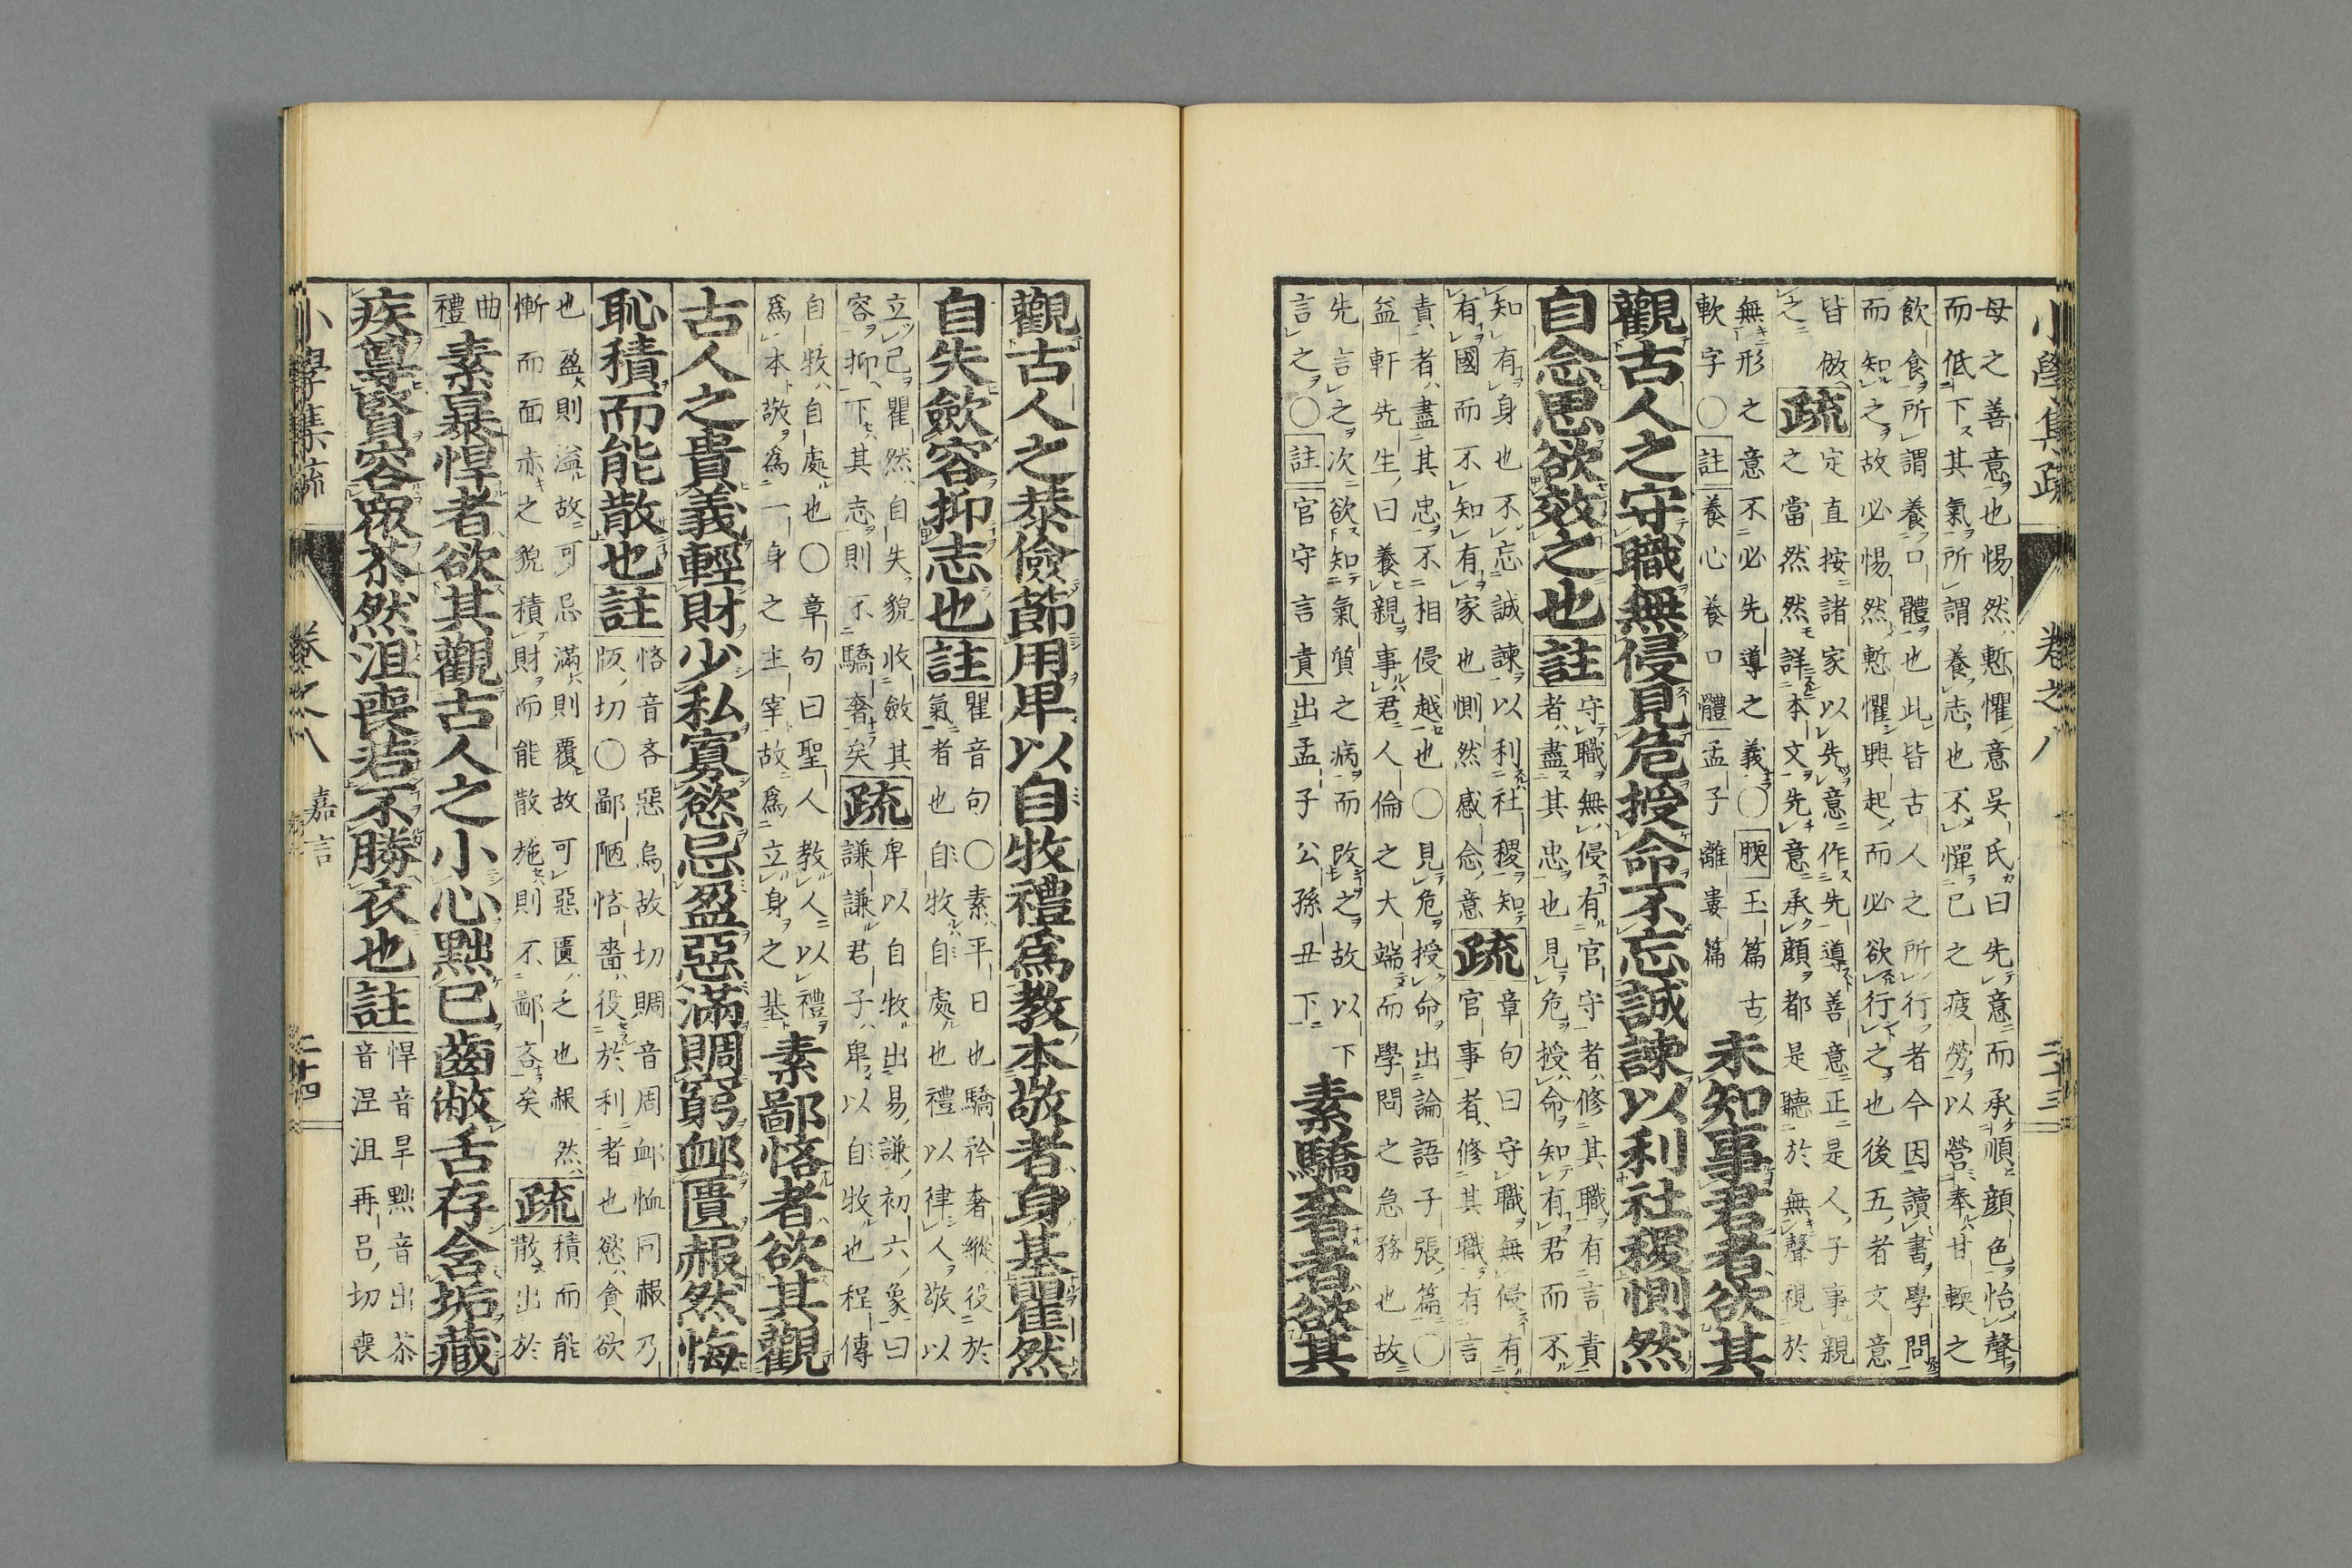 小學集疏
卷之八
二十三
母之善意也惕然慙懼意吳氏曰先意而承順顏色怡聲
而低下其氣所謂養志也不憚己之疲勞以營奉甘輭之
飲食所謂養口體也此皆古人之所行者今因讀書學問
而知之故必惕然慙懼興起而必欲行之也後五者文意
皆倣
之
疏
定直按諸家以先意作先導善意正是人子事親
之當然然詳本文先意承顏都是聽於無聲視於
無形之意不必先導之義〇腝玉篇古
軟字〇註養心養口體孟子離婁篇
未知事君者欲其
觀古人之守職無侵見危授命不忘誠諫以利社稷惻然
自念思欲效之也註
守職無侵有官守者修其職有言責
者盡其忠也見危授命知有君而不
知有身也不忘誠諫以利社稷知
有國而不知有家也惻然感念意
疏
章句曰守職無侵有
官事者修其職有言
責者盡其忠不相侵越也〇見危授命出論語子張篇〇
益軒先生曰養親事君人倫之大端而學問之急務也故
先言之次欲知氣質之病而改之故以下
言之〇註官守言責出孟子公孫丑下
素驕奢者欲其
觀古人之恭儉節用卑以自牧禮爲教本敬者身基瞿然
自失斂容抑志也註
瞿音句〇素平日也驕矜奢縱役於
氣者也自牧自處也禮以律人敬以
立己瞿然自失貌收斂其
容抑下其志則不驕奢矣
疏
卑以自牧出易謙初六象曰
謙謙君子卑以自牧也程傳
自牧自處也〇章句曰聖人教人以禮
爲本敬爲一身之主宰故爲立身之基
素鄙悋者欲其觀
古人之貴義輕財少私寡慾忌盈惡滿賙窮卹匱赧然悔
恥積而能散也註
悋音吝惡烏故切賙音周卹恤同赧乃
版切〇鄙陋悋嗇役於利者也慾貪欲
也盈則溢故可忌滿則覆故可惡匱乏也赧然
慚而面赤之貌積財而能散施則不鄙吝矣
疏
積而能
散出於
曲
禮
素暴悍者欲其觀古人之小心黜己齒敝舌存含垢藏
疾尊賢容衆苶然沮喪若不勝衣也註
悍音旱黜音出苶
音涅沮再呂切喪
小學集疏
卷之八
嘉言
二十四